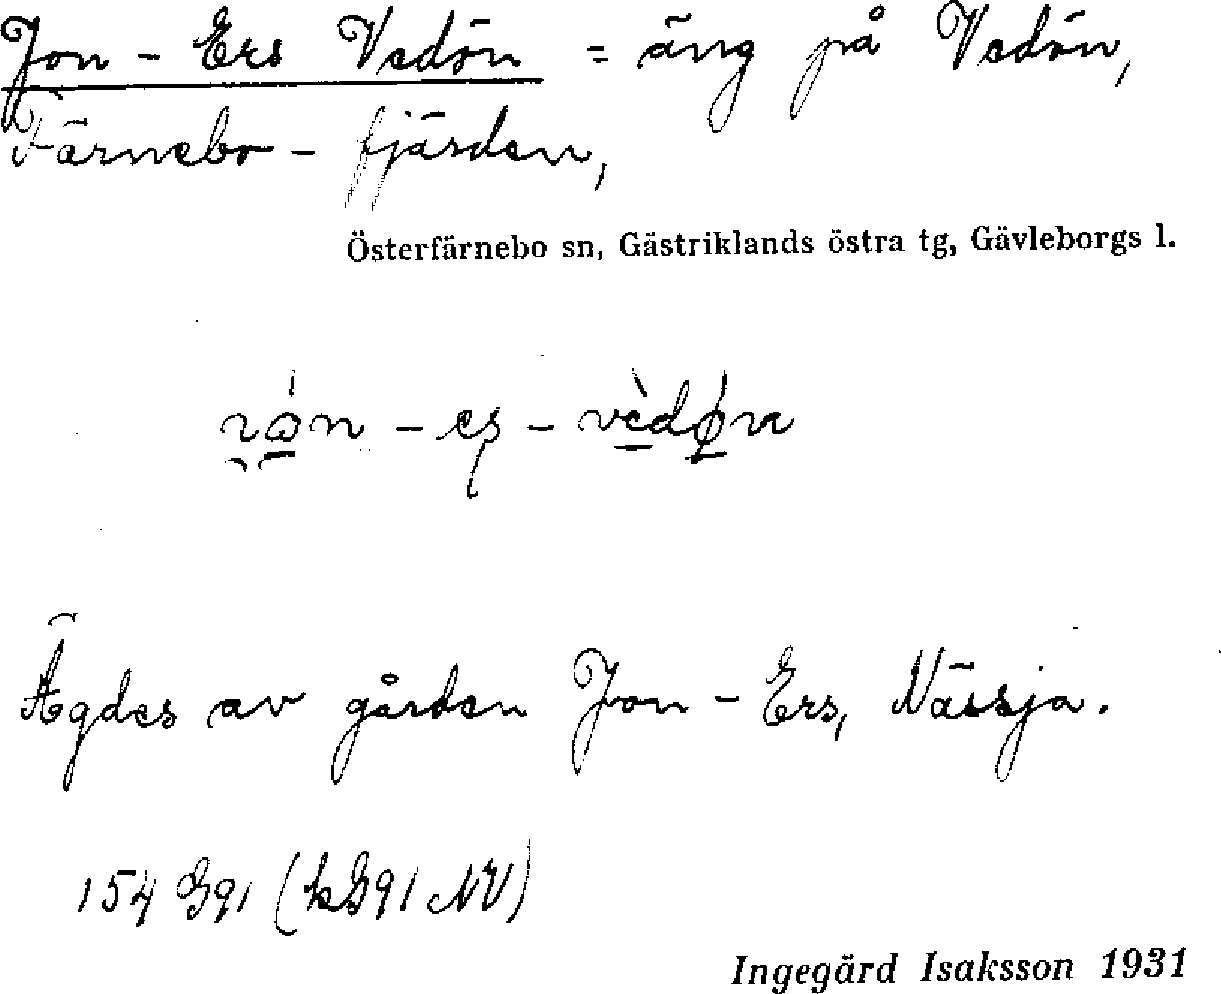 Jon - Ers Vedön = äng på Vedön,
Färnebo - fjärden,
Österfärnebo sn, Gästriklands östra tg, Gävleborgs l.
Ägdes av gården Jon - Ers, Nässja.
154 G91 (kG91 NV)
Ingegärd Isaksson 1931